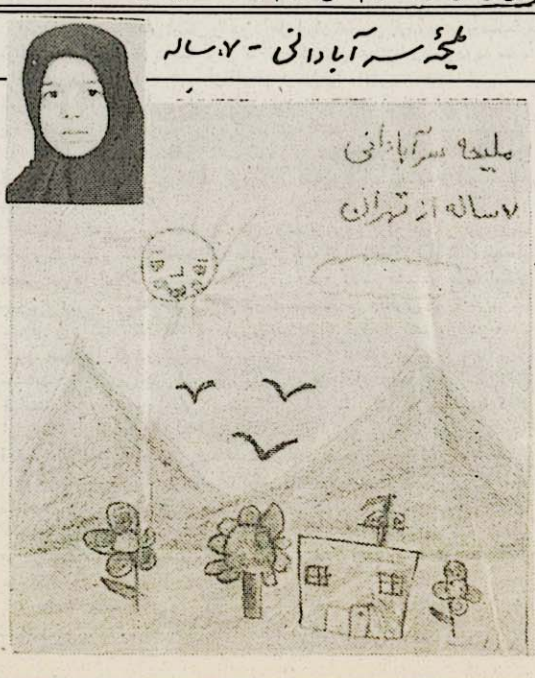 ملیحهٔ سرآبادانی - ۷ ساله
ملیحه سرآبادانی
۷ ساله از تهران